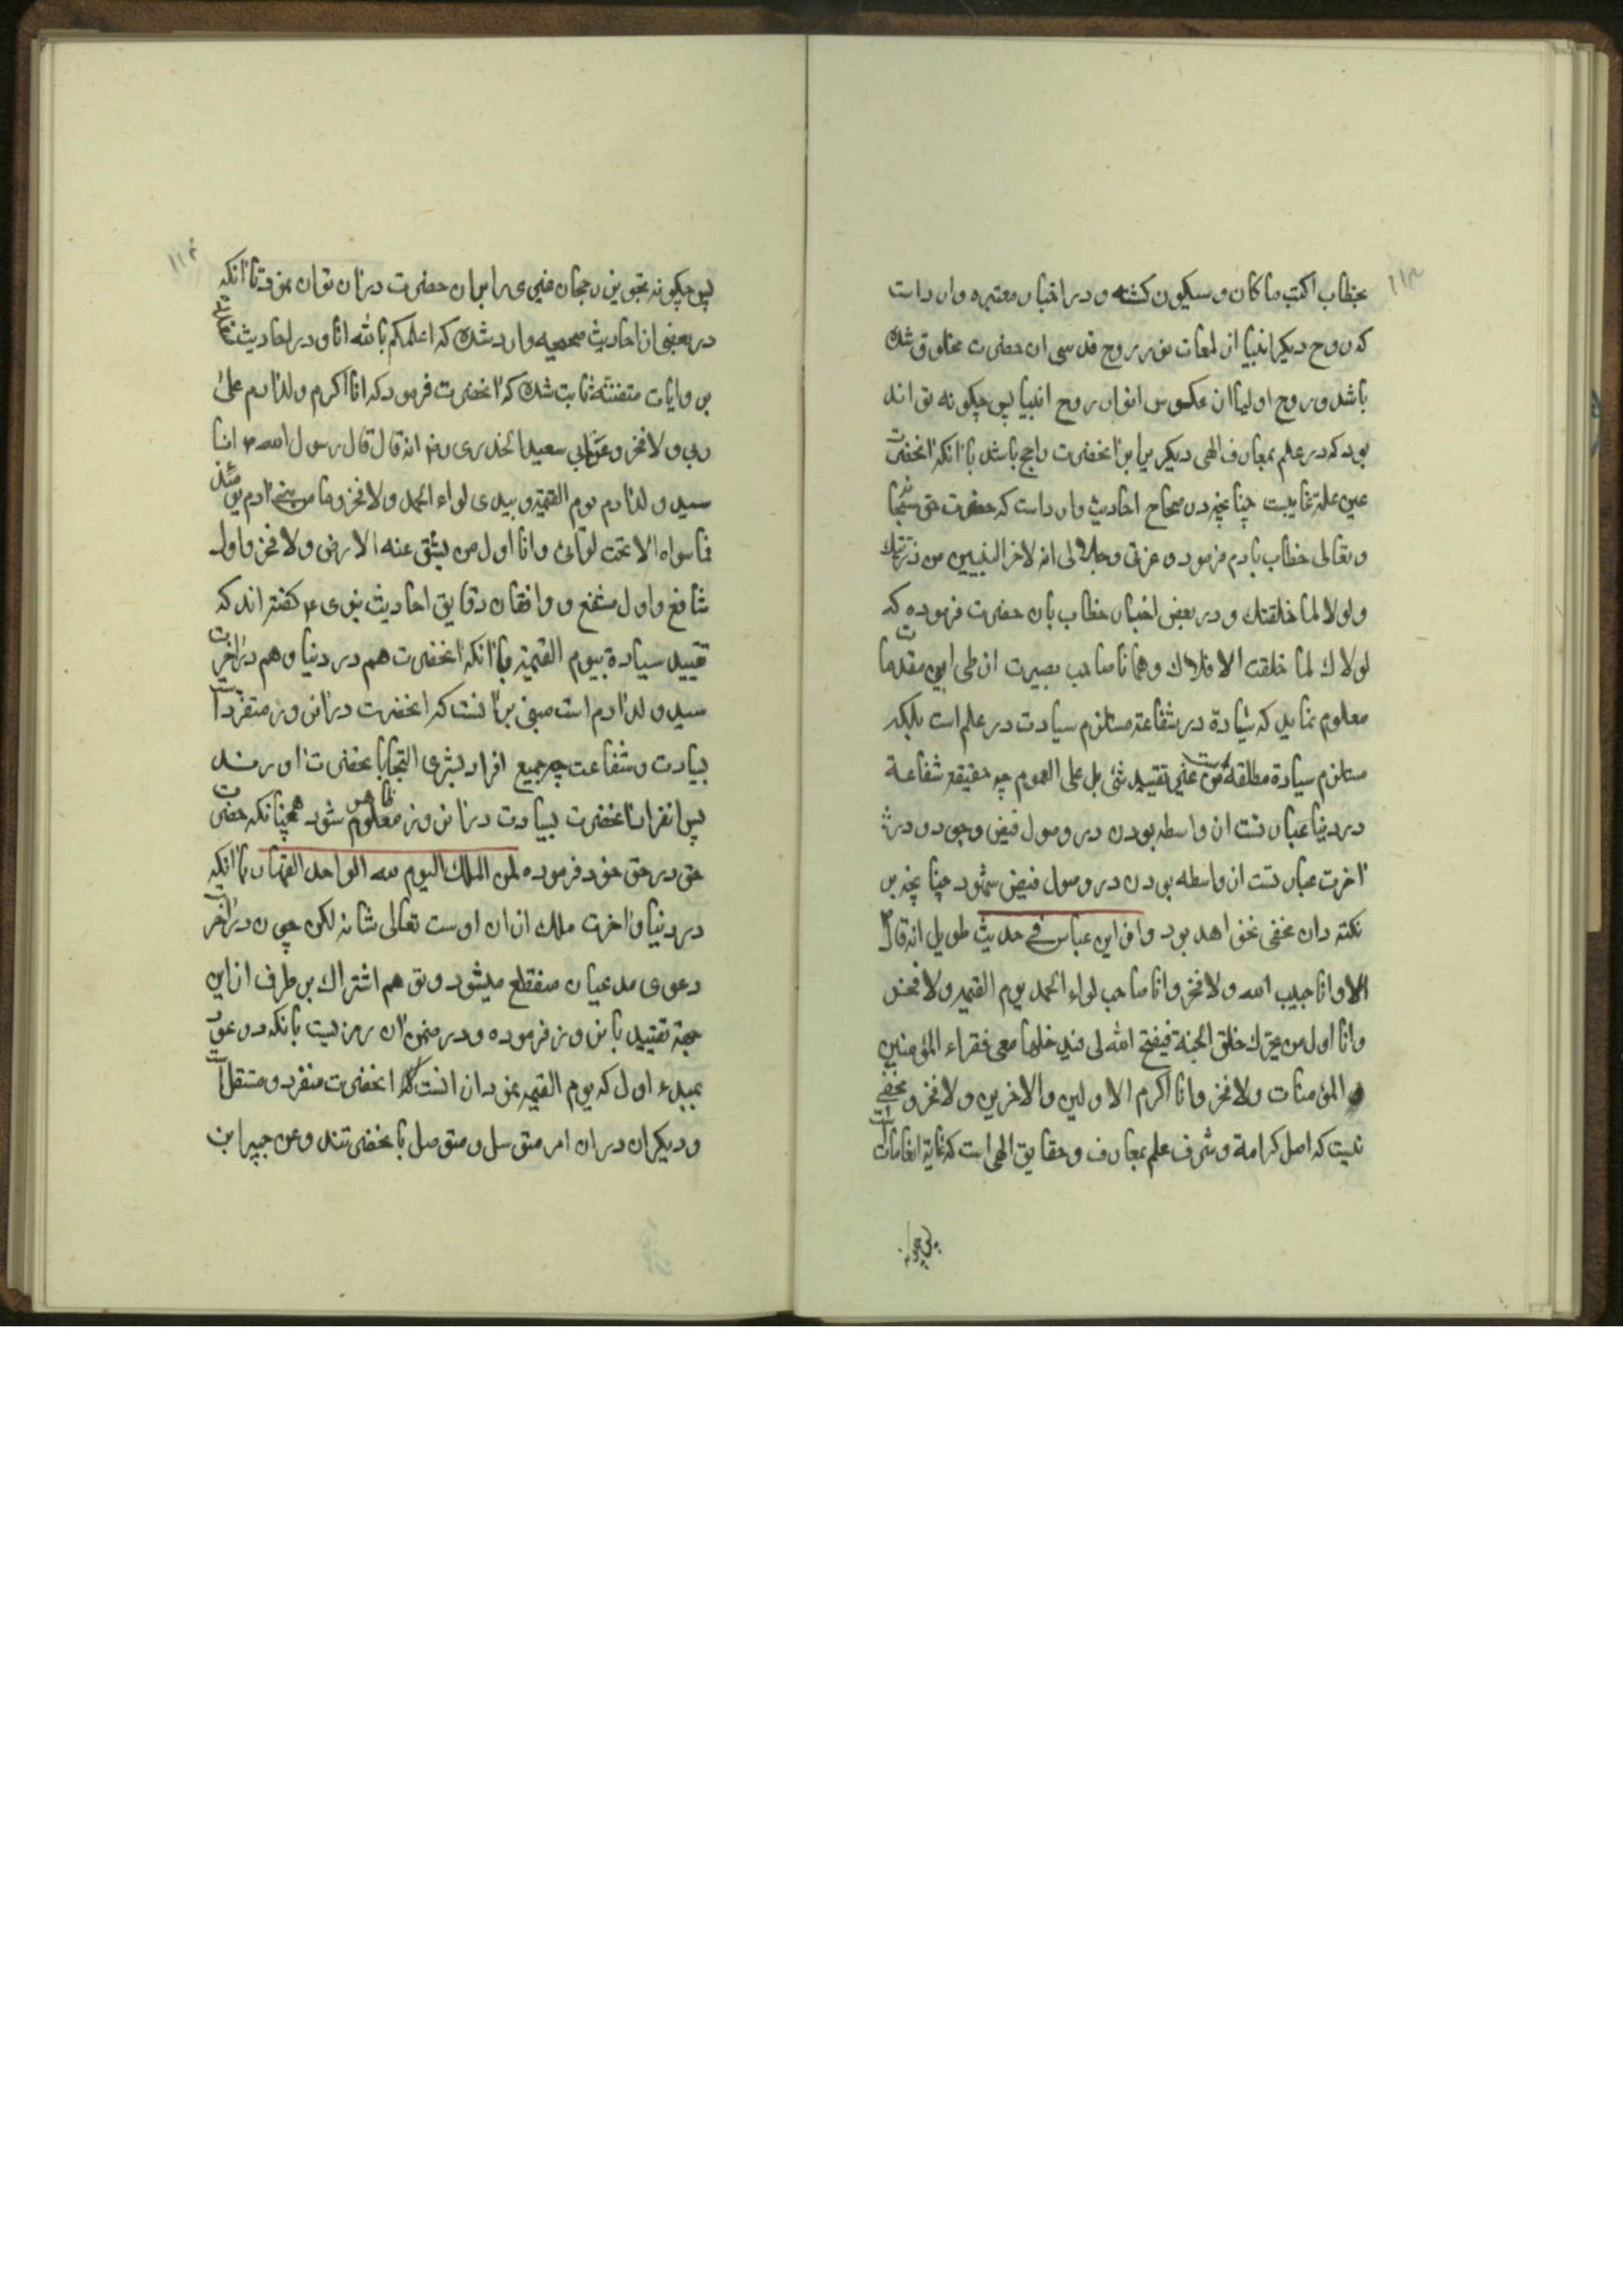 ۱۱۳
بخطاب اکتب ما کان و سیکون کشته و در اخبار معتبره وارد است
که روح دیکر انبیا از لمعات نور روح قدسی ان حضرت مخلوق شده
باشد و روح اولیا از عکوس انوار روح انبیا پس چکونه تواند
بود که در علم بمعارف الهی دیکر برابر آنحضرت راجح باشد با آنکه آنحضرت
عین علة غاییست چنانچه در صحاح احادیث وارد است که حضرت حق سبحانه
و تعالی خطاب بآدم فرموده و عزتی و جلالی انه لاخر النبیین من ذریتك
و لولا لما خلقتك و در بعض اخبار خطاب بان حضرت فرموده که
لولاك لما خلقت الافلاك و همانا صاحب بصیرت از طی این مقدمات
معلوم نماید که سیادة در شفاعة مستلزم سیادت در علم است بلکه
مستلزم سیادة مطلقه است من غیر تقیید شئ بل علی العموم چه حقیقة شفاعة
در دنیا عبارتست از واسطه بودن در وصول فیض وجود و در
آخرت عبارتست از واسطه بودن در وصول فیض شهود چنانچه بر
نکته دان مخفی نخواهد بود و عن ابن عباس فی حدیث طویل انه قال
الا و انا حبیب الله و لا فخر و انا صاحب لواء الحمد یوم القیمه و لا فخر
و انا اول من یحرك حلق الجنة فیفتح الله لی فیدخلها معی فقراء المؤمنین
و المؤمنات و لا فخر و انا اکرم الاولین و الاخرین و لا فخر و مخفی
نیست که اصل کرامة و شرف علم بمعارف و حقایق الهی است که غایة الغایات
پس چکونه
۱۱۴
پس چکونه تجویز رجحان غیری را بران حضرت دران توان نمود با آنکه
در بعضی از احادیث صحیحه وارد شده که اعلمکم بالله انا و در احادیث
بروایات متفننه ثابت شده که آنحضرت فرمود که انا اکرم ولد آدم علی
ربی و لا فخر و عن ابی سعید الخدری رض انه قال قال رسول الله ص انا
سید ولد آدم یوم القیمة و بیدی لواء الحمد و لا فخر و ما من بنی آدم یومئذ
فما سواه الا تحت لوائی و انا اول من ینشق عنه الارض و لا فخر و اول
شافع و اول مشفع و واقفان دقایق احادیث نبوی ع کفته اند که
تقیید سیادة بیوم القیمة با آنکه آنحضرت هم در دنیا و هم در آخرت
سید ولد آدم است مبنی بر آنست که آنحضرت در آن روز متفرد است
بسیادت و شفاعت چه جمیع افراد بشری التجا بانحضرت آورند
پس انفراد آنحضرت بسیادت در آن روز معلوم ظاهر شود همچنانکه حضرت
حق در حق خود فرموده لمن الملك الیوم لله الواحد القهار با آنکه
در دنیا و آخرت ملك ازان اوست تعالی شانه لکن چون در آخرت
دعوی مدعیان منقطع میشود و توهم اشتراك بر طرف ازین
جهة تقیید بان روز فرموده و در ضمن آن رمزیست بانکه در عود
بمبدء اول که یوم القیمه نمودار انست که آنحضرت منفرد و مستقل است
و دیکران دران امر متوسل و متوصل بانحضرتند و عن جبیر ابن